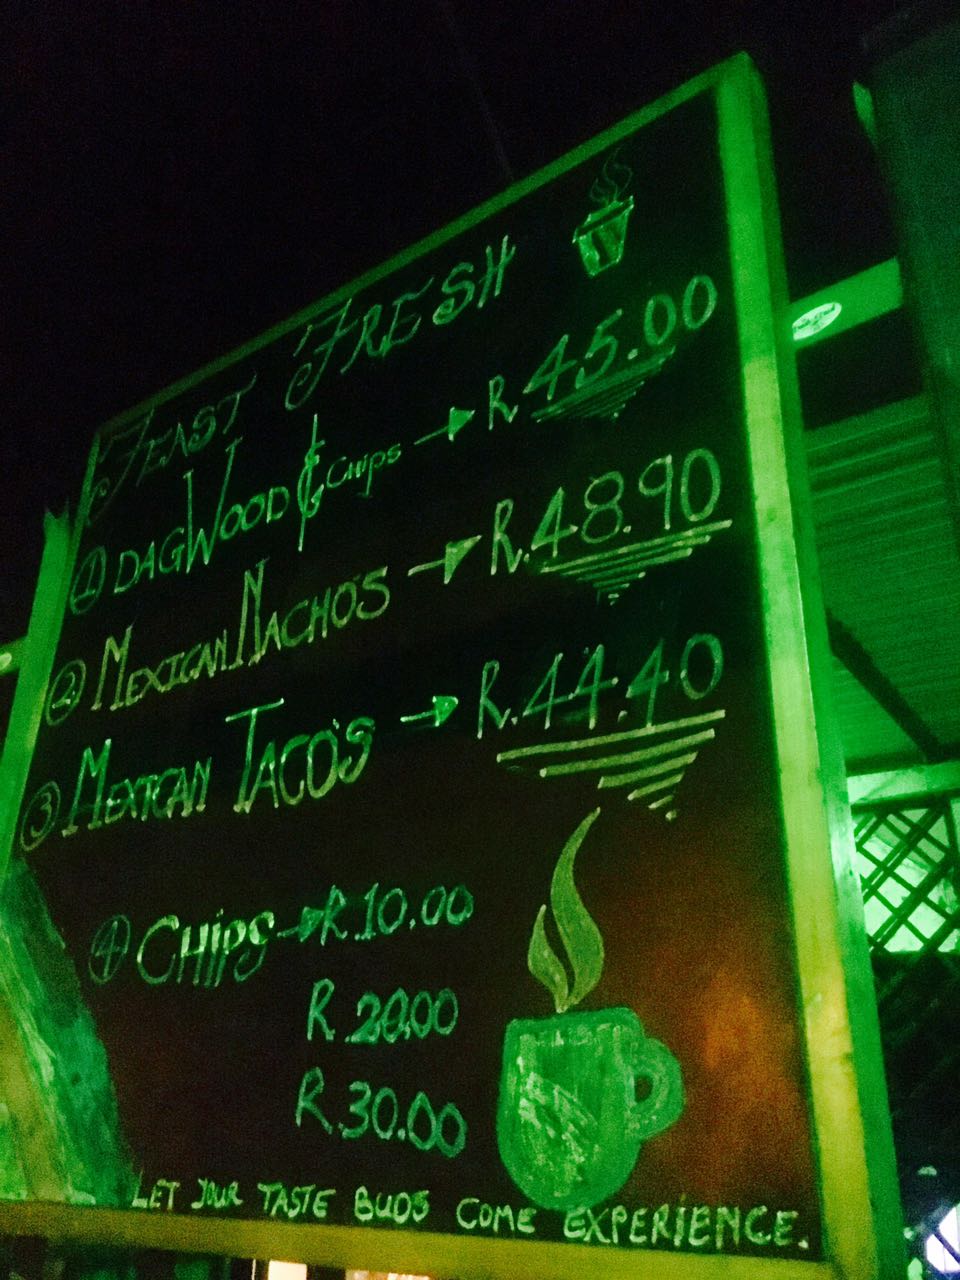 FEAST FRESH
① DAGWOOD & CHIPS → R 45.00
② MEXICAN NACHO'S → R.48.90
③ MEXICAN TACO'S → R.44.40
④ CHIPS → R.10.00
R.20.00
R.30.00
LET YOUR TASTE BUDS COME EXPERIENCE.